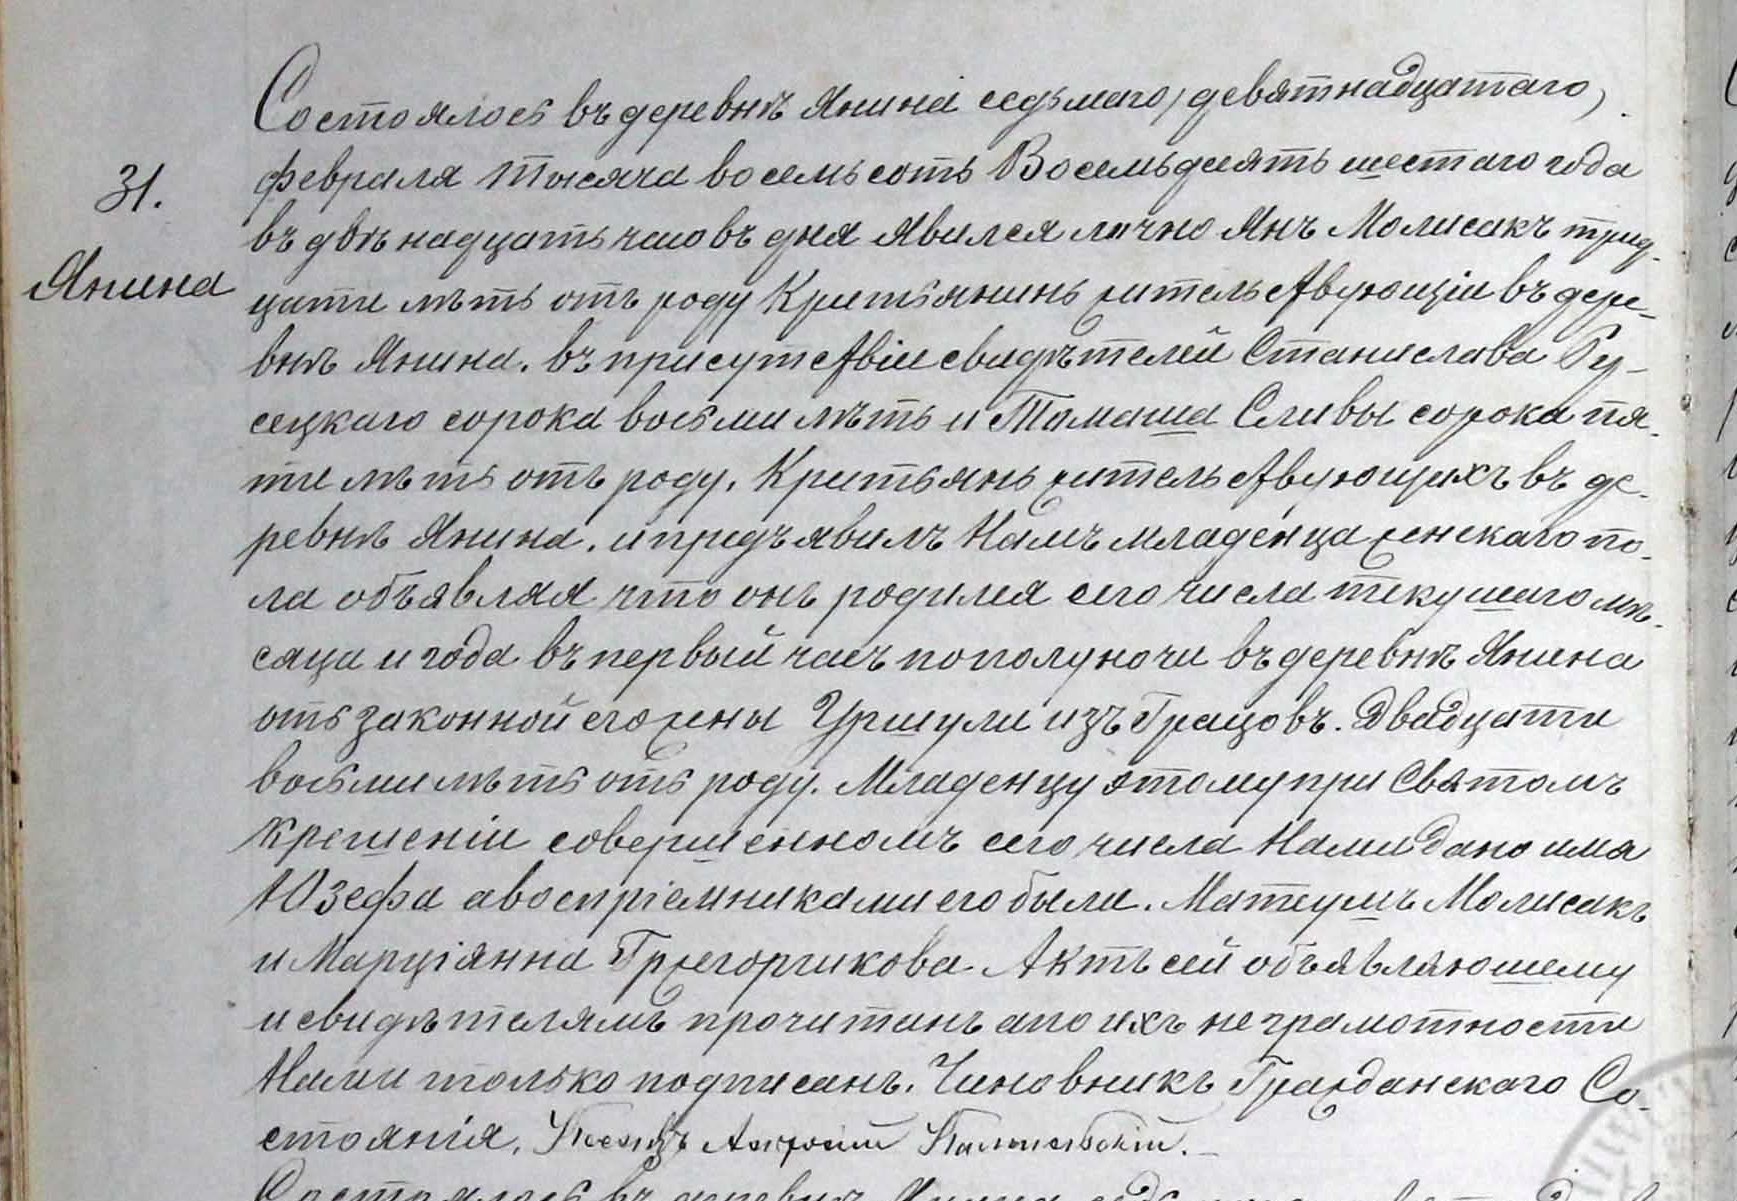 Состоялось въ деревнѣ Янина седьмаго, девятнадцатаго,
31.
февраля тысяча восемьсотъ Восемьдесятъ шестаго года
въ двѣнадцать часовъ дня явился лично Янъ Молисакъ трид-
Янина
цати лѣтъ отъ роду Крестьянинъ жительствующій въ дере-
внѣ Янина, въ присутствіи свидѣтелей Станислава Ру-
сецкаго сорока восьми лѣтъ и Томаша Сливы сорока пя-
ти лѣтъ отъ роду, Крестьянъ жительствующихъ въ де-
ревнѣ Янина, и предъявилъ Намъ младенца женскаго по-
ла объявляя что онъ родился сего числа текущаго мѣ-
сяца и года въ первый часъ пополуночи въ деревнѣ Янина
отъ законной его жены Уршули изъ Грацовъ. Двадцати
восьми лѣтъ отъ роду. Младенцу этому при Святомъ
Крещеніи совершенномъ сего числа Нами дано имя
Юзефа а воспріемниками его были. Матеушъ Молисакъ
и Марціянна Гржегорчикова. Актъ сей объявляющему
и свидѣтелямъ прочитанъ а по ихъ неграмотности
Нами только подписанъ. Чиновникъ Гражданскаго Со-
стоянія,